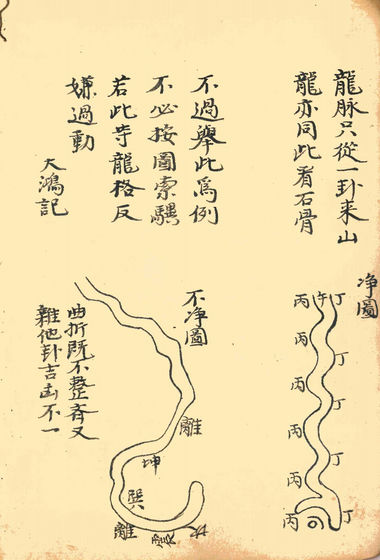 龍脉只從一卦来山
龍亦同此看石骨
不過舉此爲例
不必按圖索驥
若此等龍格反
嫌過動
大鴻記
净圖
丙午丁
丙
丁
丙
丁
丙
丙
丁
丙
丁
不净圖
曲折既不整齊又
雜他卦吉凶不一
離
坤
巽
離